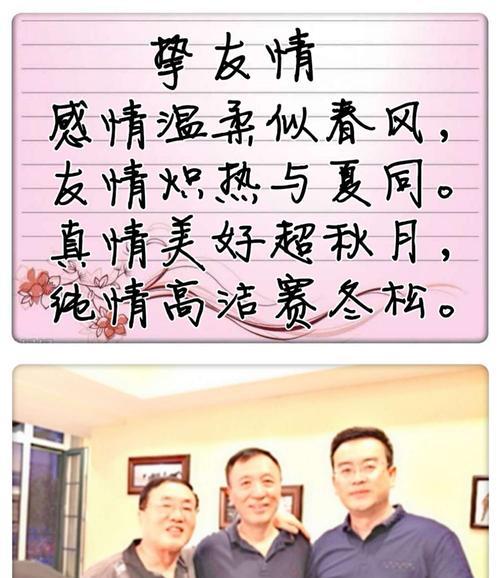 挚友情
感情温柔似春风，
友情炽热与夏同。
真情美好超秋月，
纯情高洁赛冬松。